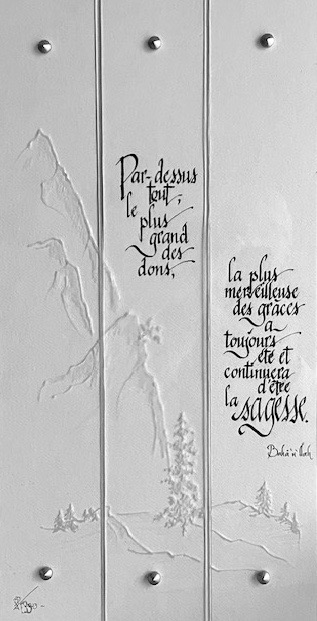 Par-dessus
tout,
le plus
grand
des
dons,
la plus
merveilleuse
des grâces
a
toujours
été et
continuera
d'être
la sagesse.
Bahá'u'lláh